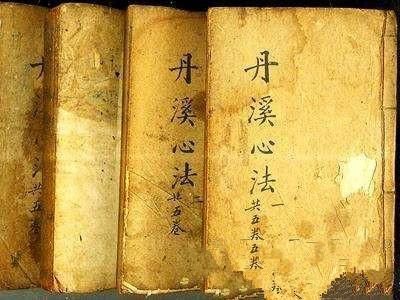 丹溪心法
一
共五卷五卷
丹溪心法
二
共五卷
丹溪心
共五